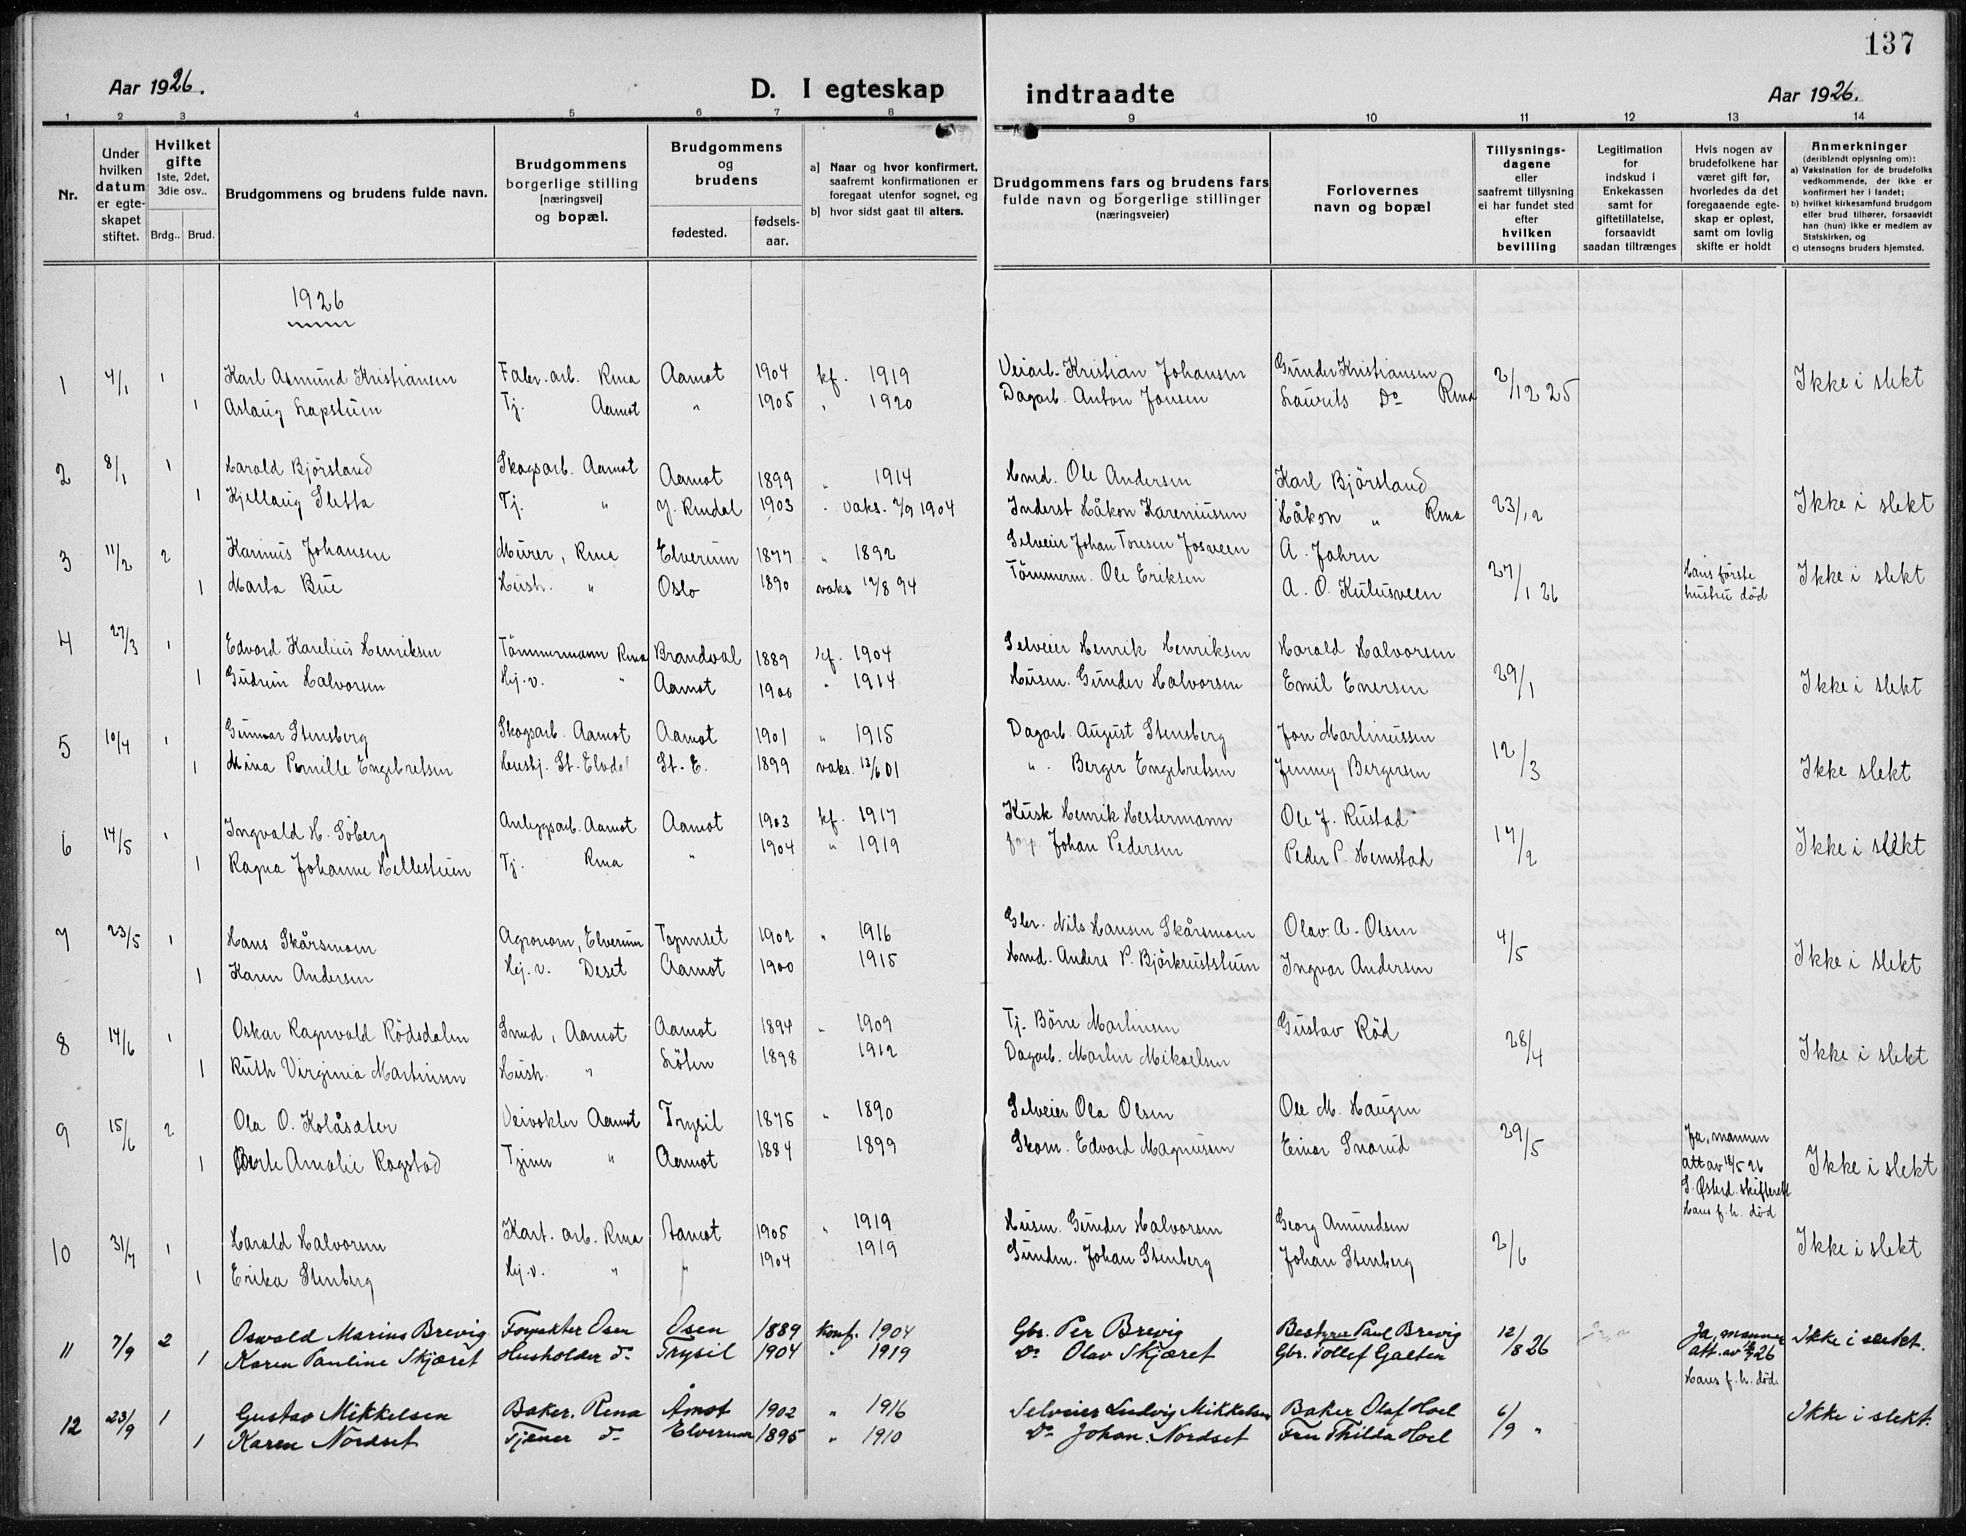 137
Aar 1926.
D. I egteskap indtraadte
Aar 1926.
1 2 3 4 5 6 7 8 9 10 11 12 13 14
Nr.
Under hvilken datum er egteskapet stiftet.
Hvilket gifte 1ste, 2det, 3die osv..
Brdg.. Brud.
Brudgommens og brudens fulde navn.
Brudgommens borgerlige stilling [næringsvei] og bopæl.
Brudgommens og brudens
fødested.
fødselsaar.
a) Naar og hvor konfirmert, saafremt konfirmationen er foregaat utenfor sognet, og
b) hvor sidst gaat til alters.
Brudgommens fars og brudens fars fulde navn og borgerlige stillinger (næringsveier)
Forlovernes navn og bopæl
Tillysningsdagene eller saafremt tillysning ei har fundet sted efter hvilken bevilling
Legitimation for indskud i Enkekassen samt for giftetillatelse, forsaavidt saadan tiltrænges
Hvis nogen av brudefolkene har været gift før, hvorledes da det foregaaende egteskap er opløst, samt om lovlig skifte er holdt
Anmerkninger (deriblandt oplysning om):
a) Vaksination for de brudefolks vedkommende, der ikke er konfirmert her i landet;
b) hvilket kirkesamfund brudgom eller brud tilhører, forsaavidt han (hun) ikke er medlem av Statskirken, og
c) utensogns bruders hjemsted.
1926
1 4/1 1 Karl Asmund Kristiansen Fabr. arb. Rena Aamot 1904 kf. 1919 Veiarb. Kristian Johansen Gunder Kristiansen 2/12 25 Ikke i slekt
1 Aslaug Lapstuen Tj. Aamot " 1905 " 1920 Dagarb. Anton Jonsen Laurits Do Rena
2 8/1 1 Harald Bjørsland Skogsarb. Aamot Aamot 1899 " 1914 Hmd. Ole Andersen Karl Bjørsland 23/12 Ikke i slekt
1 Kjellaug Sletta Tj. " Y. Rendal 1903 " vaks. 2/9 1904 Inderst Håkon Kareniussen Håkon " Rena
3 11/2 2 Karinus Johansen Murer, Rena Elverum 1877 " 1892 Selveier Johan Tonsen Josveen A. Jahrn 27/1 26 Hans første hustru død Ikke i slekt
1 Marta Bue Hush. " Oslo 1890 vaks 12/8 94 Tømmerm. Ole Eriksen A. O. Kulusveen
4 27/3 1 Edvard Karelius Henriksen Tømmermann Rena Brandval 1889 kf. 1904 Selveier Henrik Henriksen Harald Halvorsen 29/1 Ikke i slekt
1 Gudrun Halvorsen Hj. v. " Aamot 1900 " 1914 Husm. Gunder Halvorsen Emil Enersen
5 10/4 1 Gunnar Stensberg Skogsarb. Aamot Aamot 1901 " 1915 Dagarb. August Stensberg Jon Martinussen 12/3 Ikke slekt
1 Mina Pernille Engebretsen Hushj. St. Elvdal St. E. 1899 vaks. 13/6 01 " Berger Engebretsen Jenny Bergersen
6 14/5 1 Ingvald H. Søberg Anleggsarb. Aamot Aamot 1903 kf. 1917 Kusk Henrik Hestermann Ole J. Rustad 17/2 Ikke i slekt
1 Ragna Johanne Hellestuen Tj. Rena " 1904 " 1919 Johan Pedersen Peder P. Hemstad
7 23/5 1 Hans Skårsmoen Agronom, Elverum 1902 " 1916 Gbr. Nils Hansen Skårsmoen Olav. A. Olsen 4/5 Ikke i slekt
1 Karen Andersen Hj. v. Deset Aamot 1900 1915 Hmd. Anders P. Bjørkrustshuen Ingvar Andersen
8 14/6 1 Oskar Ragnvald Rødsdalen Smed, Aamot Aamot 1894 " 1909 Tj. Børre Martinsen Gustav Rød 28/4 Ikke i slekt
1 Ruth Virginia Martinsen Hush. " Løten 1898 1912 Dagarb. Martin Mikaelsen
9 15/6 2 Ola O. Kolåsæter Veivokter Aamot Trysil 1875 " 1890 Selveier Ola Olsen Ole M. Haugen 29/5 Ja, mannen att av 18/5 26 S. Østerd. skifterett Hans f. h. død Ikke i slekt
1 Berte Amalie Rogstad Tjener " Aamot 1884 1899 Skom. Edvard Magnussen Einar Snarud
10 31/7 1 Harald Halvorsen Kart. arb. Rena Aamot 1905 " 1919 Husm. Gunder Halvorsen Georg Amundsen 2/6 Ikke i slekt
1 Erika Stenberg Hj. v. " " 1904 1919 Johan Stenberg Johan Stenberg
11 7/9 2 Oswald Marius Brevig Forvakter Osen Osen 1889 Konf. 1904 Gbr. Per Brevig Bestyrer Paul Brevig 12/8 26 Ja, mannen att. av 26 Hans f. h. død. Ikke i slekt.
1 Karen Pauline Skjæret Husholder do Trysil 1904 " 1919 Do Olav Skjæret Gbr. Tollef Galten
12 23/9 1 Gustav Mikkelsen Baker. Rena Åmot 1902 " 1916 Selveier Ludvig Mikkelsen Baker Olaf Hoel 6/9 " Ikke i slekt.
1 Karen Nordset Tjener do Elverum 1895 " 1910 Do Johan. Nordset Fru Thilda Hoel